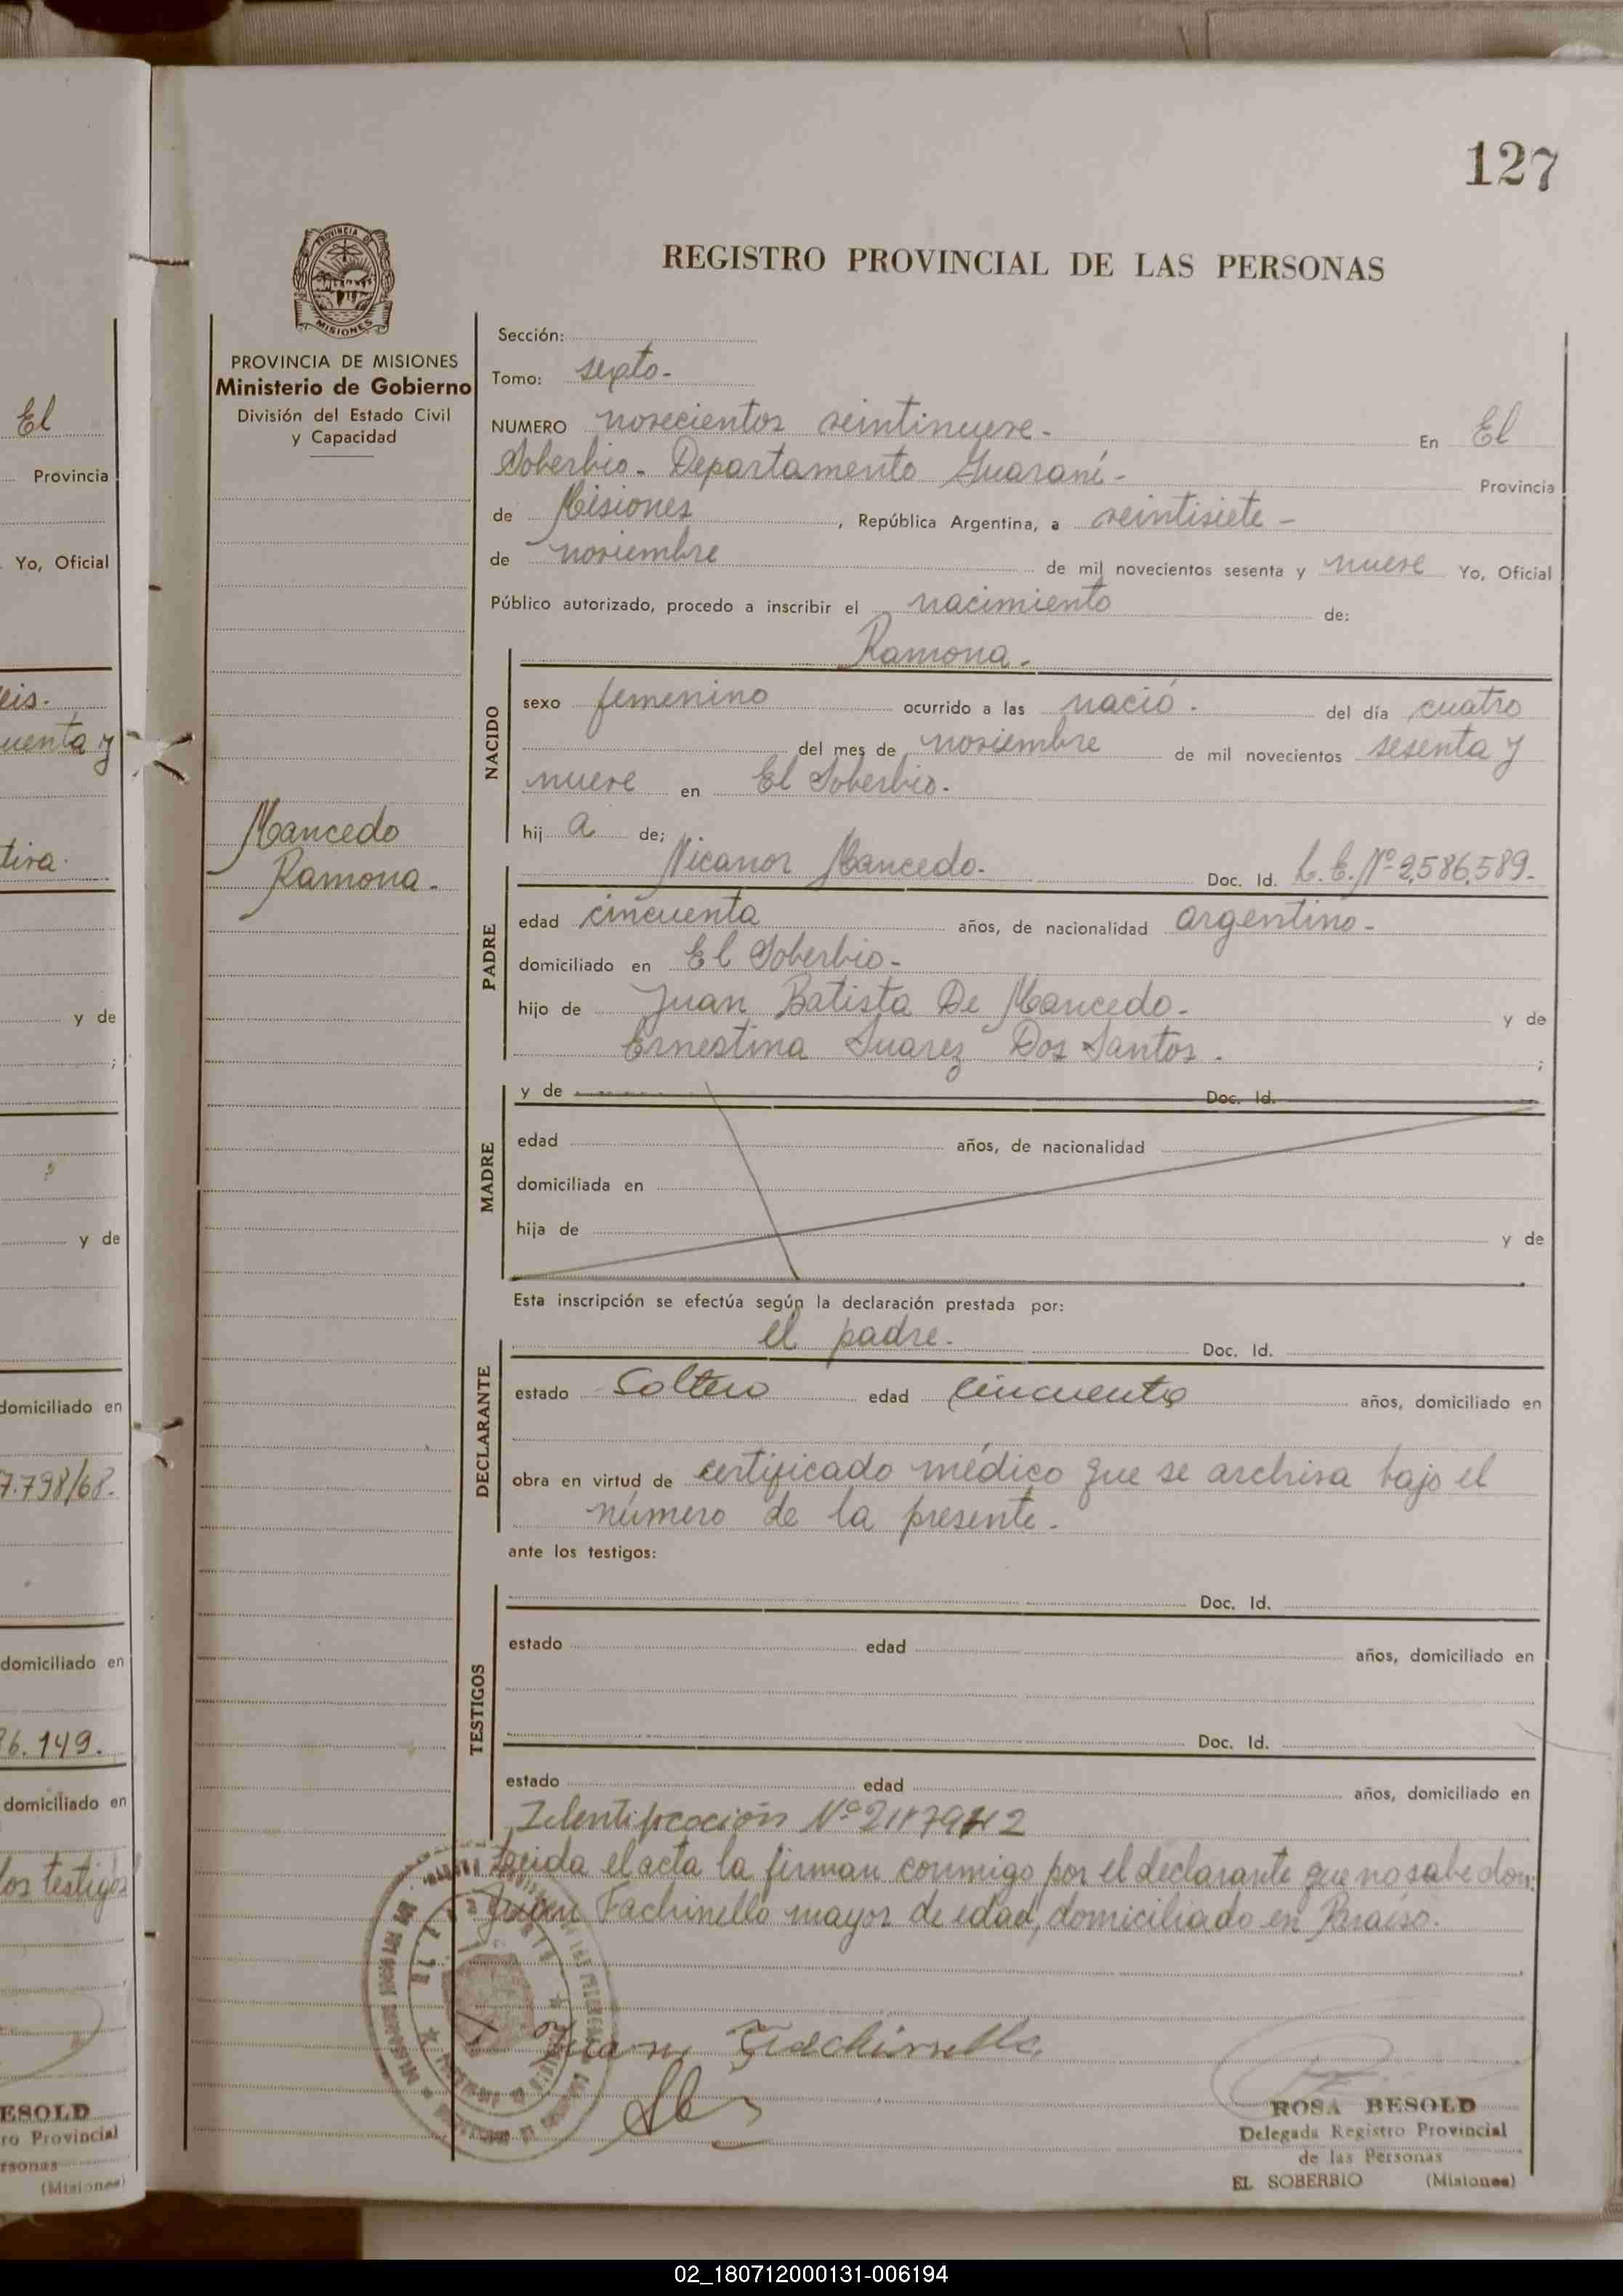 127
REGISTRO PROVINCIAL DE LAS PERSONAS
PROVINCIA DE MISIONES
MISIONES
PROVINCIA DE MISIONES
Ministerio de Gobierno
División del Estado Civil
y Capacidad
Mancedo
Ramona.
Sección:
Tomo: sexto.
NUMERO novecientos veintinueve. En El
Soberbio. Departamento Guaraní. Provincia
de Misiones, República Argentina, a veintisiete
de noviembre de mil novecientos sesenta y nueve Yo, Oficial
Público autorizado, procedo a inscribir el nacimiento de:
Ramona.
NACIDO
sexo femenino ocurrido a las nació. del día cuatro
del mes de noviembre de mil novecientos sesenta y
nueve en El Soberbio.
hij a de;
Nicanor Mancedo. Doc. Id. L.E. Nº 2,586,589.
PADRE
edad cincuenta años, de nacionalidad argentino.
domiciliado en El Soberbio.
hijo de Juan Batista De Mancedo. y de
Ernestina Suarez Dos Santos. ;
MADRE
y de Doc. Id.
edad años, de nacionalidad
domiciliada en
hija de y de
Esta inscripción se efectúa según la declaración prestada por:
el padre. Doc. Id.
DECLARANTE
estado Soltero edad cincuenta años, domiciliado en
obra en virtud de certificado médico que se archiva bajo el
número de la presente.
ante los testigos:
Doc. Id.
TESTIGOS
estado edad años, domiciliado en
Doc. Id.
estado edad años, domiciliado en
Identificación Nº
el acta la firman conmigo por el declarante que no sabe don:
Juan Fachinello mayor de edad, domiciliado en Paraíso.
Juan Fachinello
ROSA BESOLD
Delegada Registro Provincial
de las Personas
EL SOBERBIO (Misiones)
El
Provincia
Yo, Oficial
eis.
uenta y
tiva.
y de
;
y de
domiciliado en
7.798/68.
domiciliado en
86.149.
domiciliado en
los testigos
ESOLD
ro Provincial
rsonas
(Misiones)
02_180712000131-006194